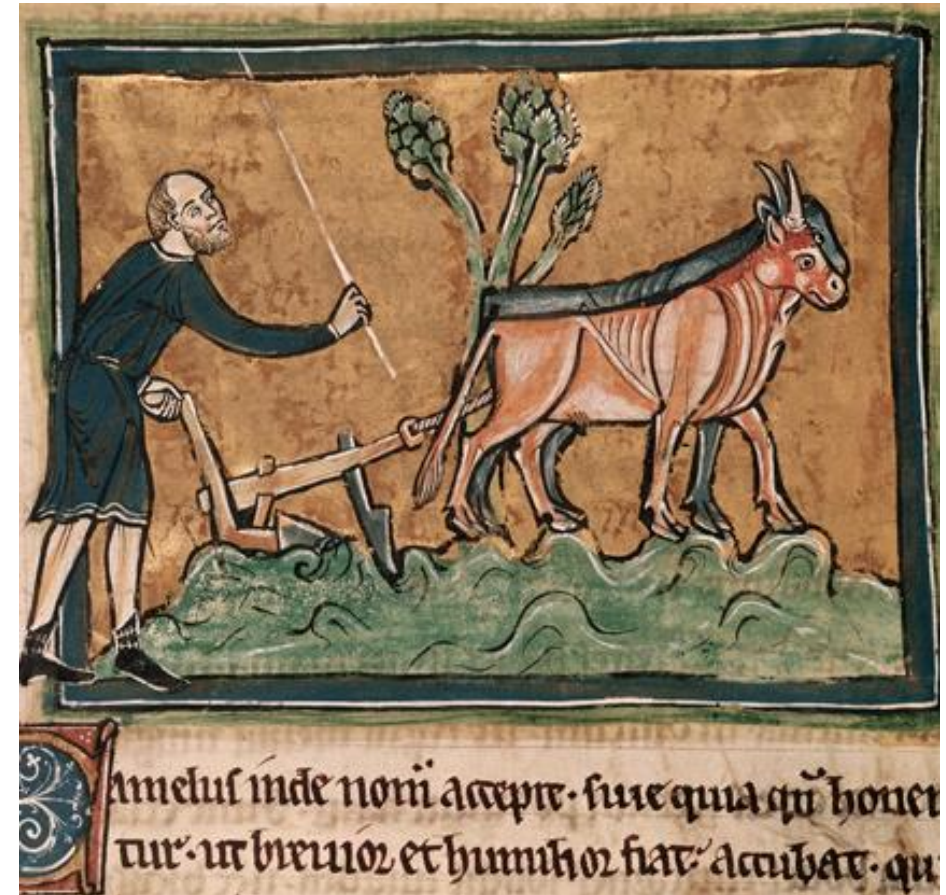 Camelus inde nom̄ accepit· siue quia qn̄ honer
tur· ut breuior et humilior fiat· accubat· qu